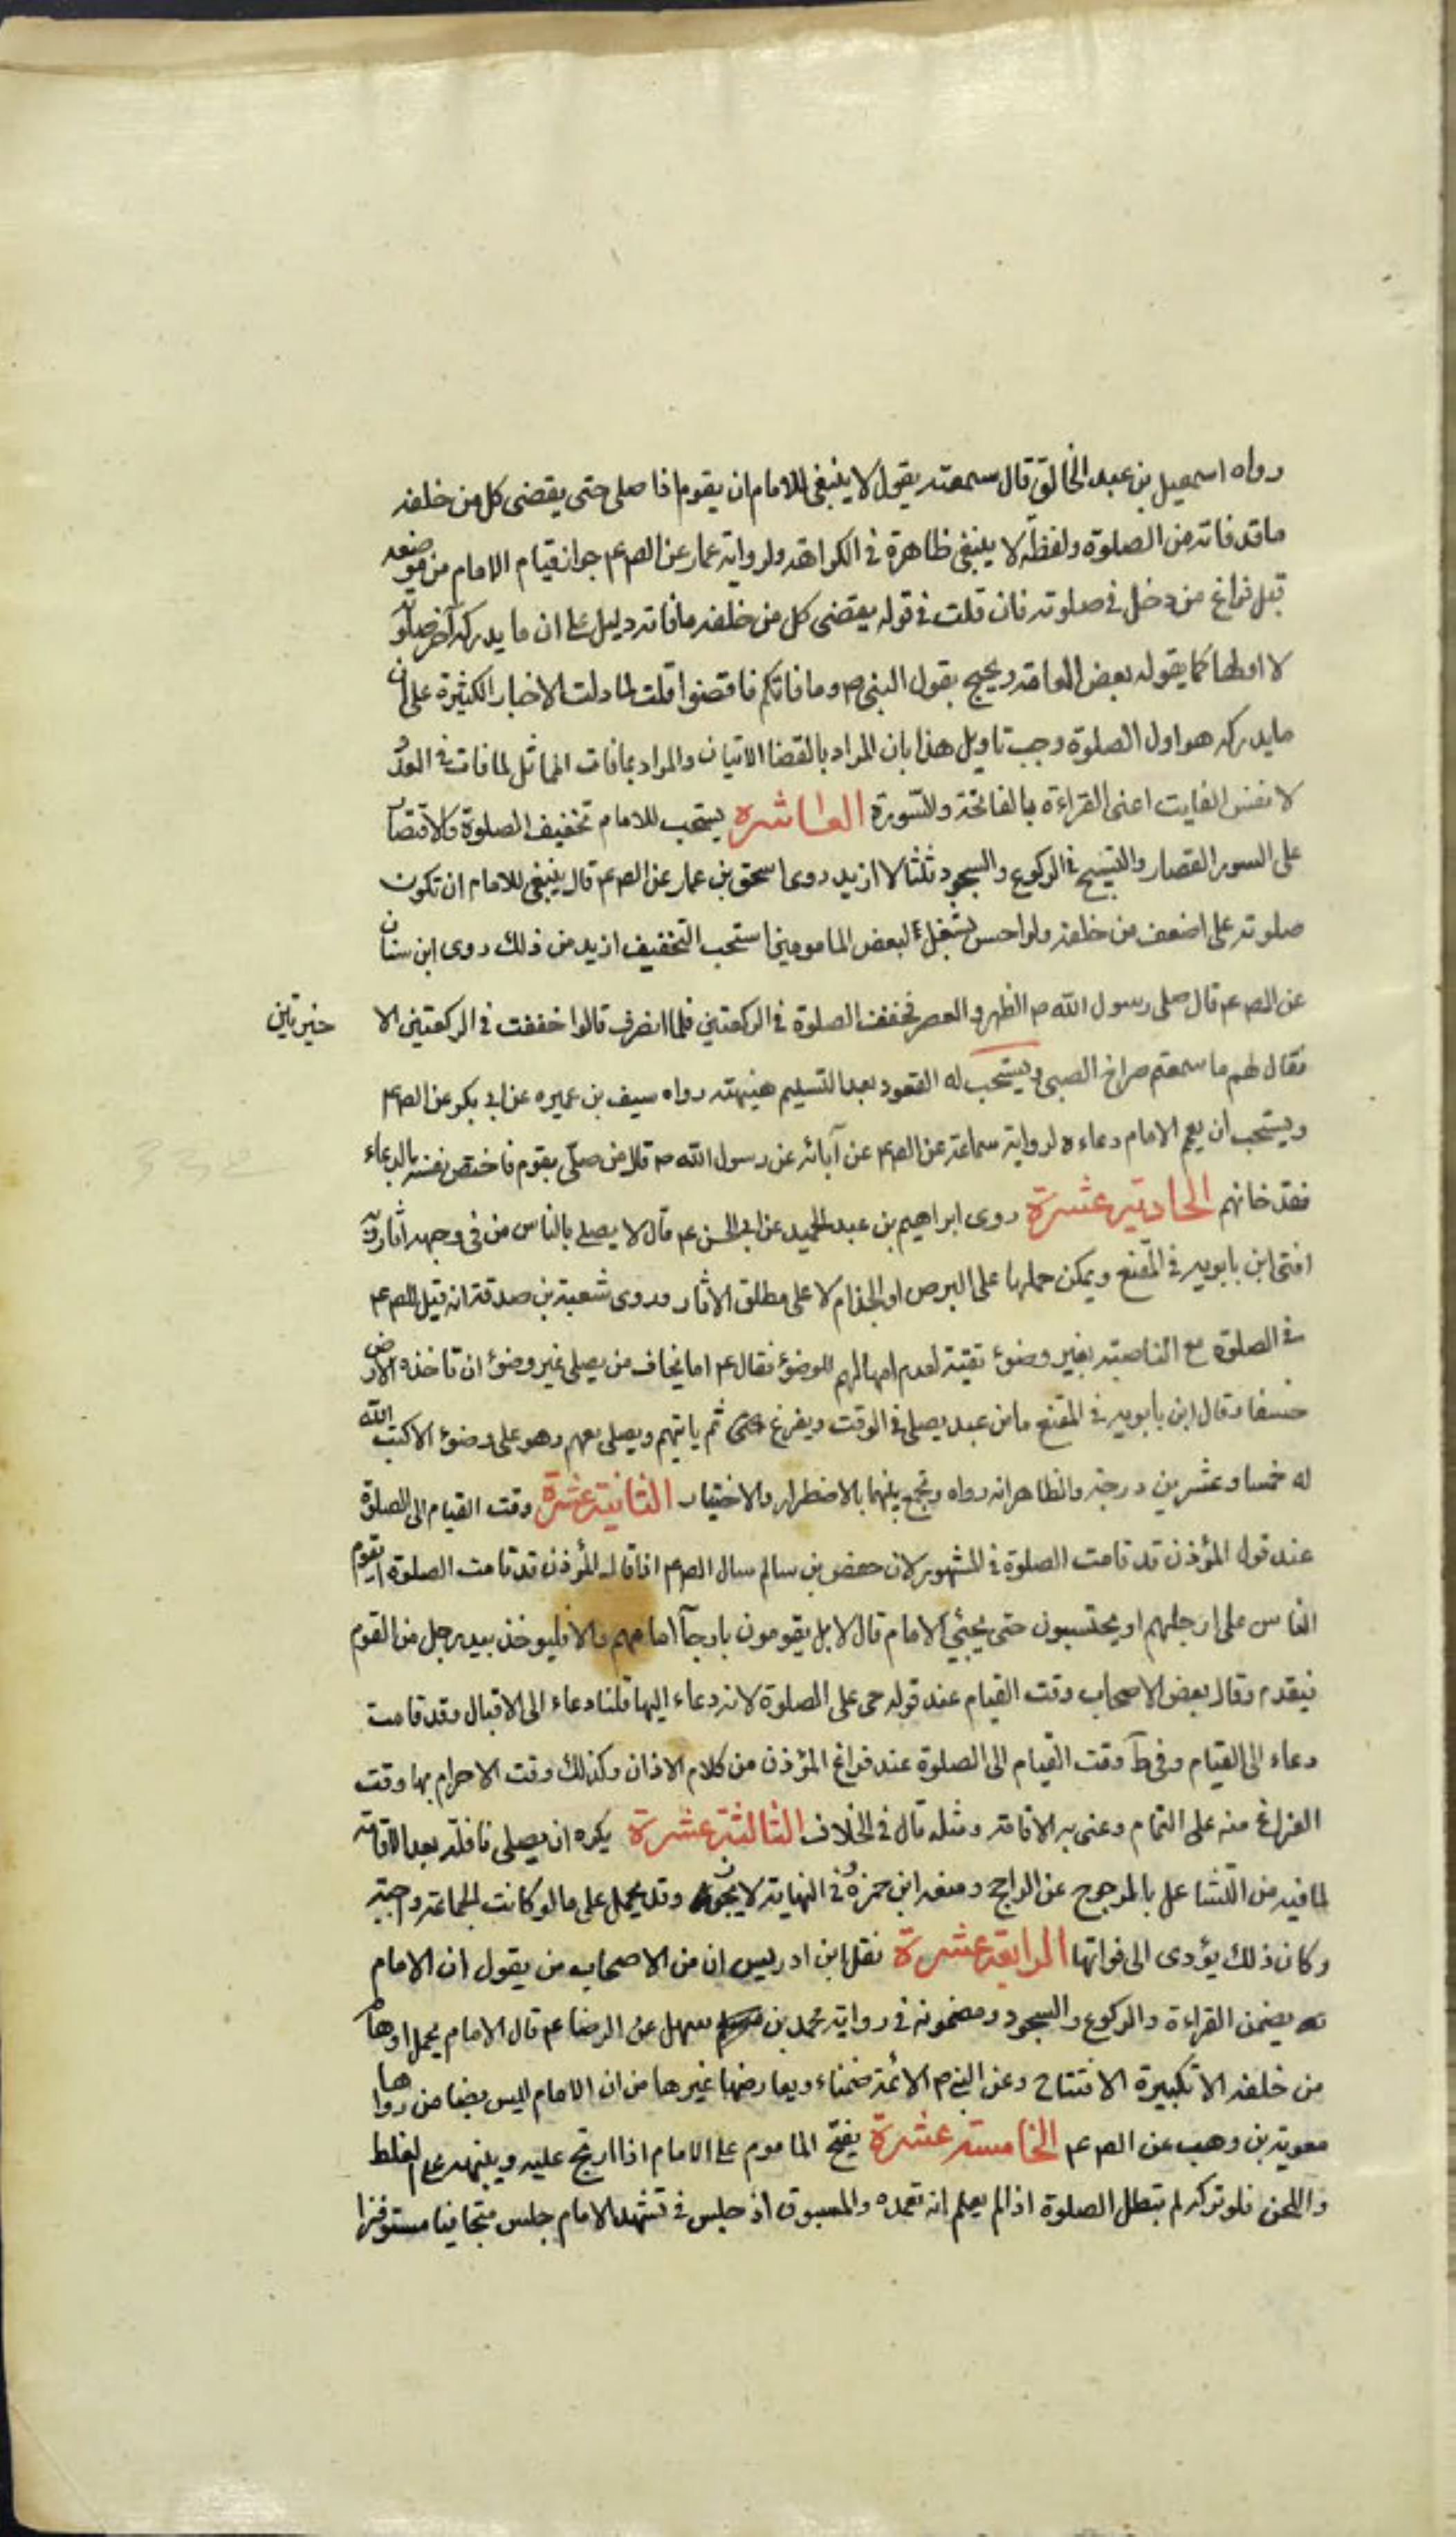 رواه اسمعيل بن عبد الخالق قال سمعته يقول لا ينبغي للامام ان يقوم اذا صلى حتى يقضى كل من خلفه
ما قد فاته من الصلوة ولفظة لا ينبغي ظاهرة في الكراهة ولرواية عمار عن الص ع م جواز قيام الامام من موضعه
قبل فراغ من دخل في صلوته فان قلت في قوله يقضى كل من خلفه ما فاته دليل على ان ما يدركه آخر صلوته
لا اولها كما يقوله بعض العامة ويحتج بقول النبي ص وما فاتكم فاقضوا قلت لما دلت الاخبار الكثيرة على ان
ما يدركه هو اول الصلوة وجب تاويل هذا بان المراد بالقضا الاتيان والمراد بما فات المماثل لما فات في العدد
لا نفس الفايت اعنى القراءة بالفاتحة والسورة العاشره يستحب للامام تخفيف الصلوة والاقتصار
على السور القصار والتسبيح في الركوع والسجود ثلثا لا ازيد روى اسحق بن عمار عن الص ع م قال ينبغي للامام ان تكون
صلوته على اضعف من خلفه ولو احس بشغل لبعض المامومين استحب التخفيف ازيد من ذلك روى ابن سنان
عن الص ع م قال صلى رسول الله ص الظهر والعصر فخفف الصلوة في الركعتين فلما انصرف قالوا خففت في الركعتين الا خيرتين
فقال لهم ما سمعتم صراخ الصبي ويستحب له القعود بعد التسليم هنيهته رواه سيف بن عميره عن ابي بكر عن الص ع م
ويستحب ان يعم الامام دعاءه لرواية سماعة عن الص ع م عن آبائه عن رسول الله ص قال من صلى بقوم فاختص نفسه بالدعاء
فقد خانهم الحادية عشرة روى ابراهيم بن عبد الحميد عن ابي الحسن ع م قال لا يصلى بالناس من في وجهه آثار وبه
افتى ابن بابويه في المقنع ويمكن حملها على البرص او الجذام لا على مطلق الاثار وروى شعبة بن صدقة انه قيل للص ع م
في الصلوة مع الناصبة بغير وضوء تقية لعدم امهالهم للوضوء فقال ع م اما يخاف من يصلى غير وضوء ان تاخذه الارض
خسفا وقال ابن بابويه في المقنع ما من عبد يصلى في الوقت ويفرغ ثم ياتيهم ويصلى معهم وهو على وضوء الا كتب الله
له خمسا وعشرين درجة والظاهر انه رواه ونجمع بينهما بالاضطرار والاختيار الثانية عشرة وقت القيام الى الصلوة
عند قول المؤذن قد قامت الصلوة في المشهور لان حفص بن سالم سال الص ع م اذا قال المؤذن قد قامت الصلوة ايقوم
الناس على ارجلهم او يجلسون حتى يجئي الامام قال لا بل يقومون بارجلهم فان جآ امامهم والا فليوخذ بيد رجل من القوم
فيقدم وقال بعض الاصحاب وقت القيام عند قوله حى على الصلوة لانه دعاء اليها قلنا دعاء الى الاقبال وقد قامت
دعاء الى القيام وفي ط وقت القيام الى الصلوة عند فراغ المؤذن من كلام الاذان وكذلك وقت الاحرام بها وقت
الفراغ منه على التمام وعنى به الاقامة ومثله قال في الخلاف الثالثة عشرة يكره ان يصلى نافلة بعد الاقامة
لما فيه من التشاغل بالمرجوح عن الراجح ومنعه ابن حمزة وفي النهاية لا يجوز وقد يحمل على ما لو كانت الجماعة واجبة
وكان ذلك يؤدى الى فواتها الرابعة عشرة نقل ابن ادريس ان من الاصحاب من يقول ان الامام
يضمن القراءة والركوع والسجود ومضمونه في رواية محمد بن سهل عن الرضا ع م قال الامام يحمل اوهام
من خلفه الا تكبيرة الافتتاح وعن النبي ص الائمة ضمناء ويعارضها غيرها من ان الامام ليس بضامن رواها
معوية بن وهب عن الص ع م الخامسة عشرة يفتح الماموم على الامام اذا ارتج عليه وينبهه على الغلط
واللحن فلو تركه لم تبطل الصلوة اذا لم يعلم انه تعمده والمسبوق اذ جلس في تشهد الامام جلس متجافيا مستوفزا